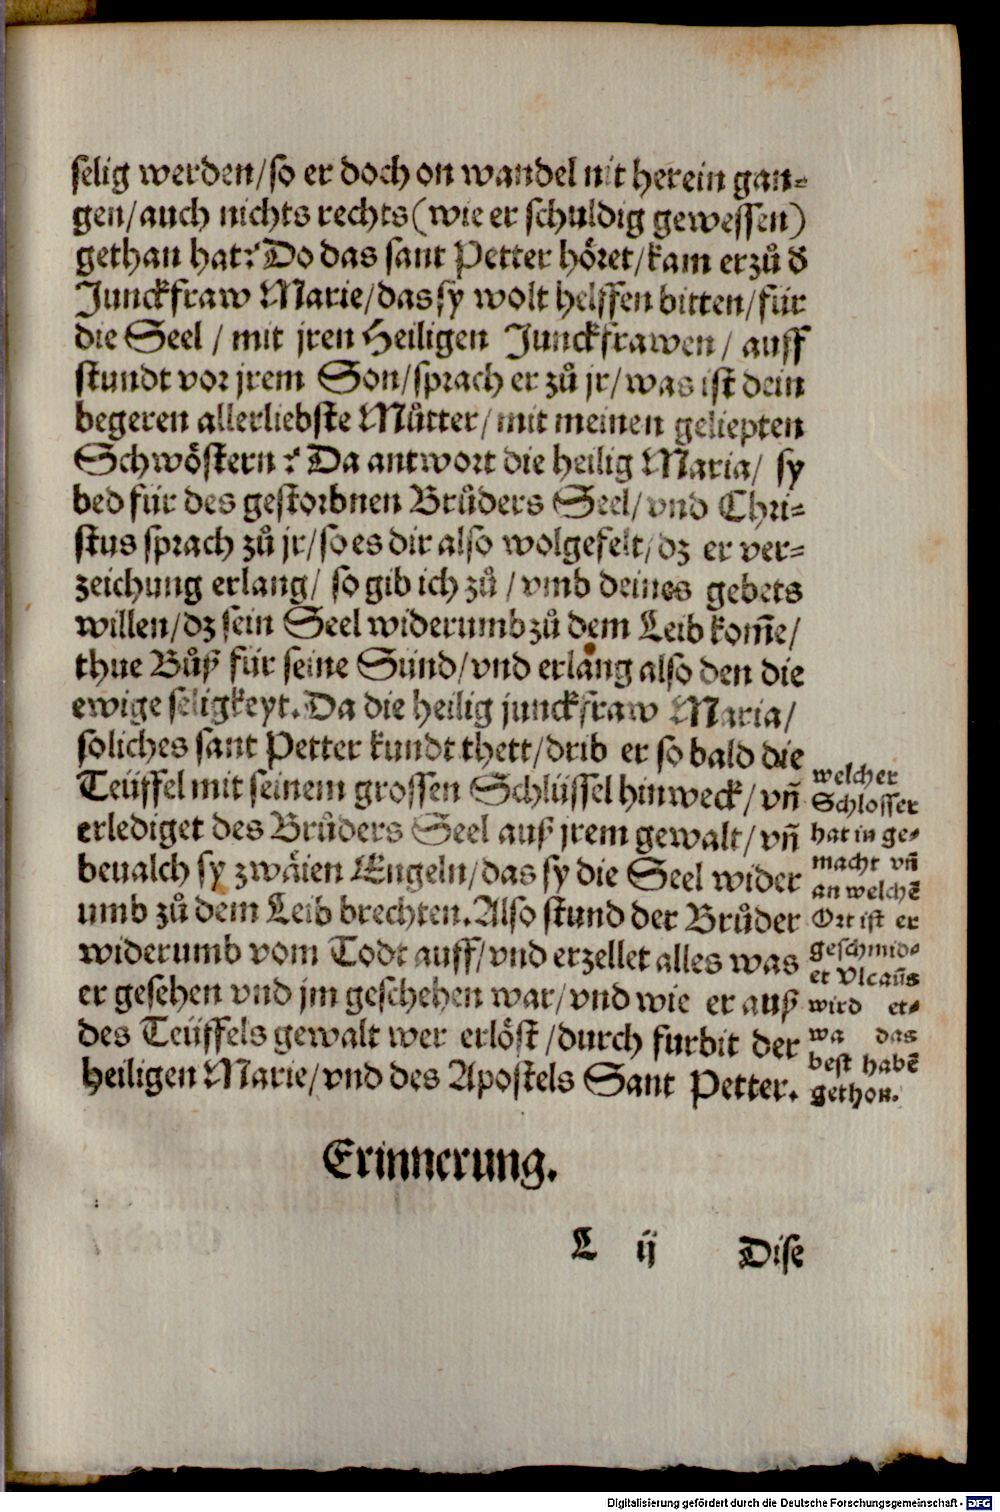 selig werden/so er doch on wandel nit herein gan⸗
gen/auch nichts rechts(wie er schuldig gewessen)
gethan hat? Do das sant Petter höret/kam er zů ď
Junckfraw Marie/das sy wolt helffen bitten/für
die Seel / mit jren Heiligen Junckfrawen/ auff
stundt vor jrem Son/sprach er zů jr/was ist dein
begeren allerliebste Můtter/mit meinen geliepten
Schwöstern? Da antwort die heilig Maria/ sy
bed für des gestorbnen Brůders Seel/vnd Chri⸗
stus sprach zů jr/so es dir also wolgefelt/dz er ver⸗
zeichung erlang/ so gib ich zů /vmb deines gebets
willen/dz sein Seel widerumb zů dem Leib kom̄e/
thue Bůß für seine Sünd/vnd erlang also den die
ewige seligkeyt. Da die heilig junckfraw Maria/
soliches sant Petter kundt thett/drib er so bald die
Teüffel mit seinem grossen Schlüssel hinweck/vn̄
erlediget des Brůders Seel auß jrem gewalt/vn̄
beualch sy zwäien Engeln/das sy die Seel wider
umb zů dem Leib brechten. Also stund der Brůder
widerumb vom Todt auff/vnd erzellet alles was
er gesehen vnd jm geschehen war/vnd wie er auß
des Teüffels gewalt wer erlöst /durch furbit der
heiligen Marie/vnd des Apostels Sant Petter.
welcher
Schlosser
hat in ge⸗
macht vn̄
an welchē
Ort ist er
geschmid⸗
et Vlcan̄s
wird et⸗
wa das
best habē
gethon.
Erinnerung.
L ij Dise
Digitalisierung gefördert durch die Deutsche Forschungsgemeinschaft - DFG